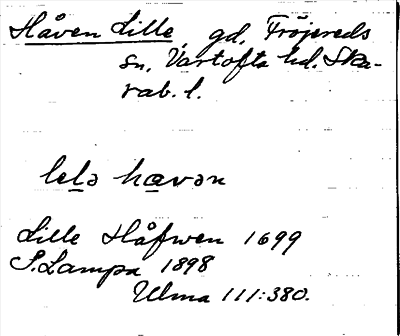 Håven Lille gd. Fröjereds
sn. Vartofta hd. Ska-
rab. l.
lelə havən
Lille Håfwen 1699
S. Lampa 1898
Ulma 111:380.